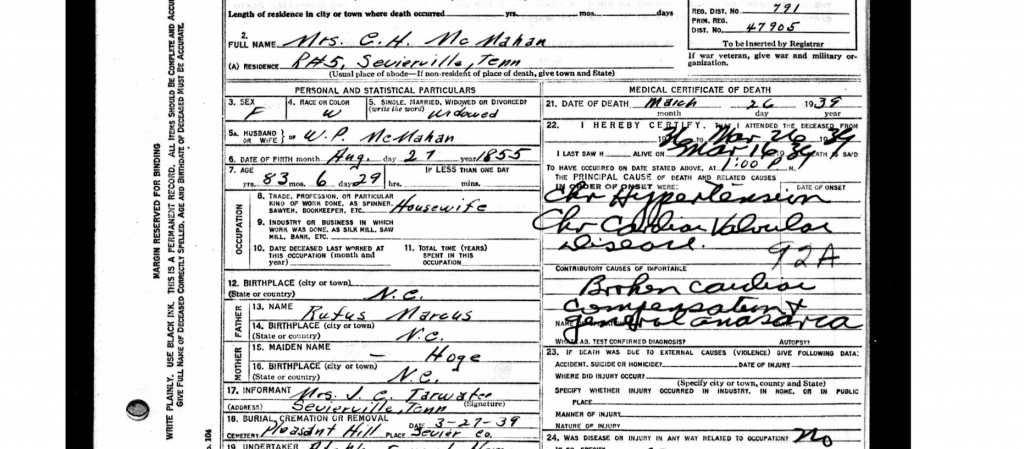 Length of residence in city or town where death occurred yrs. mos. days
REG. DIST. NO. 791
PRIM. REG.
DIST. NO. 47905
To be inserted by Registrar
2.
FULL NAME Mrs. C. H. McMahan
If war veteran, give war and military organization.
(A) RESIDENCE R#5, Sevierville, Tenn
(Usual place of abode—If non-resident of place of death, give town and State)
MARGIN RESERVED FOR BINDING
WRITE PLAINLY. USE BLACK INK. THIS IS A PERMANENT RECORD. ALL ITEMS SHOULD BE COMPLETE AND ACCURATE.
GIVE FULL NAME OF DECEASED CORRECTLY SPELLED. AGE AND BIRTHDATE OF DECEASED MUST BE ACCURATE.
PERSONAL AND STATISTICAL PARTICULARS
3. SEX F
4. RACE OR COLOR W
5. SINGLE, MARRIED, WIDOWED OR DIVORCED?
(write the word) Widowed
5A. HUSBAND
OR WIFE } OF W. P. McMahan
6. DATE OF BIRTH month Aug. day 27 year 1855
7. AGE
yrs. 83 mos. 6 days 29 hrs. mins.
IF LESS THAN ONE DAY
OCCUPATION
8. TRADE, PROFESSION, OR PARTICULAR
KIND OF WORK DONE, AS SPINNER,
SAWYER, BOOKKEEPER, ETC. Housewife
9. INDUSTRY OR BUSINESS IN WHICH
WORK WAS DONE, AS SILK MILL, SAW
MILL, BANK, ETC.
10. DATE DECEASED LAST WORKED AT
THIS OCCUPATION (month and
year)
11. TOTAL TIME (YEARS)
SPENT IN THIS
OCCUPATION
12. BIRTHPLACE (city or town)
(State or country) N.C.
FATHER
13. NAME Rufus Marcus
14. BIRTHPLACE (city or town)
(State or country) N.C.
MOTHER
15. MAIDEN NAME — Hoge
16. BIRTHPLACE (city or town)
(State or country) N.C.
17. INFORMANT Mrs. J. C. Tarwater
(Signature)
(ADDRESS) Sevierville, Tenn
18. BURIAL, CREMATION OR REMOVAL DATE 3-27-39
CEMETERY Pleasant Hill PLACE Sevier Co.
19. UNDERTAKER
MEDICAL CERTIFICATE OF DEATH
21. DATE OF DEATH March 26 1939
month day year
22. I HEREBY CERTIFY, THAT I ATTENDED THE DECEASED FROM
Mar 26 39
I LAST SAW H ALIVE ON Mar 16 39 DEATH IS SAID
TO HAVE OCCURRED ON DATE STATED ABOVE, AT 1:00 P M.
THE PRINCIPAL CAUSE OF DEATH AND RELATED CAUSES
IN ORDER OF ONSET WERE: DATE OF ONSET
Chr Hypertension
Chr Cardiac Valvular
Disease.
92A
CONTRIBUTORY CAUSES OF IMPORTANCE
Broken cardiac
compensation &
general anasarca
WHAT LAB. TEST CONFIRMED DIAGNOSIS? AUTOPSY?
23. IF DEATH WAS DUE TO EXTERNAL CAUSES (VIOLENCE) GIVE FOLLOWING DATA:
ACCIDENT, SUICIDE OR HOMICIDE? DATE OF INJURY
WHERE DID INJURY OCCUR?
(Specify city or town, county and State)
SPECIFY WHETHER INJURY OCCURRED IN INDUSTRY, IN HOME, OR IN PUBLIC
PLACE
MANNER OF INJURY
NATURE OF INJURY
24. WAS DISEASE OR INJURY IN ANY WAY RELATED TO OCCUPATION? No